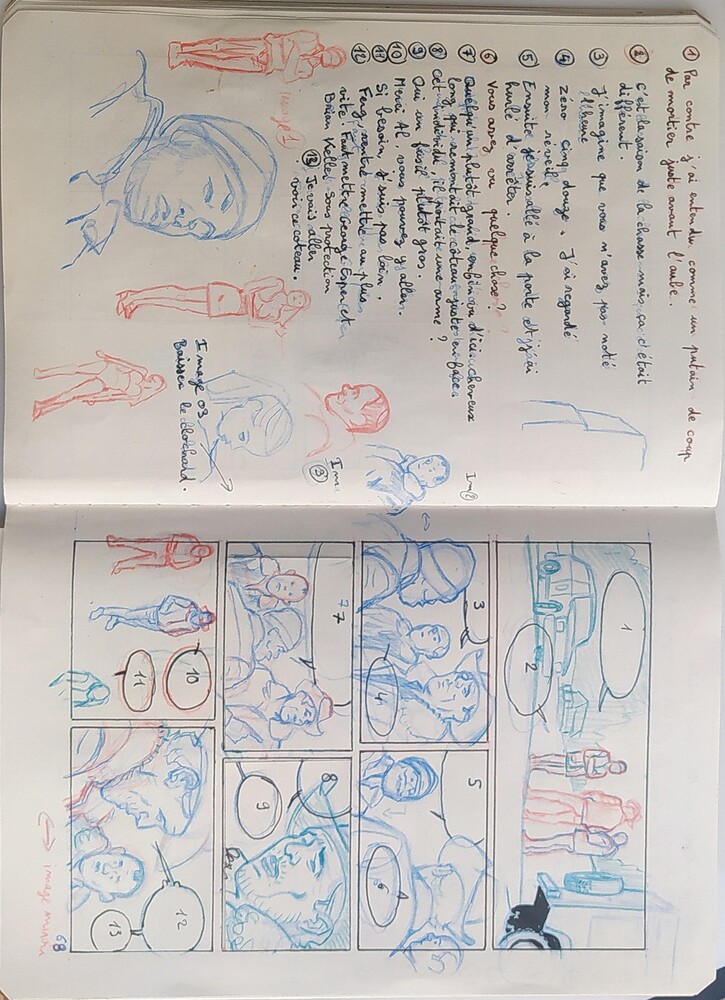 ① Par contre j'ai entendu comme un putain de coup
de mortier juste avant l'aube.
② C'est la saison de la chasse mais ça c'était
différent.
③ J'imagine que vous n'avez pas noté
l'heure
④ zéro cinq douze. J'ai regardé
mon réveil.
⑤ Ensuite je suis allé à la porte et j'ai
hurlé d'arrêter.
⑥ Vous avez vu quelque chose?
⑦ Quelqu'un plutôt grand, enfin vu d'ici, cheveux
long qui remontait le côteau juste en face
⑧ Cet individu, il portait une arme?
⑨ Oui un fusil plutôt gros.
⑩ Merci Al. vous pouvez y aller.
⑪ Si besoin, j'suis pas loin.
⑫ mettre au plus
vite! Faut mettre George Esper et
Brian Kelle sous protection
⑬ Je vais aller
voir ce coteau.
image 1
Image 03
Baisser le
Im
③
Im ②
1
2
3
4
5
6
7
7
8
9
10
11
12
13
image
68